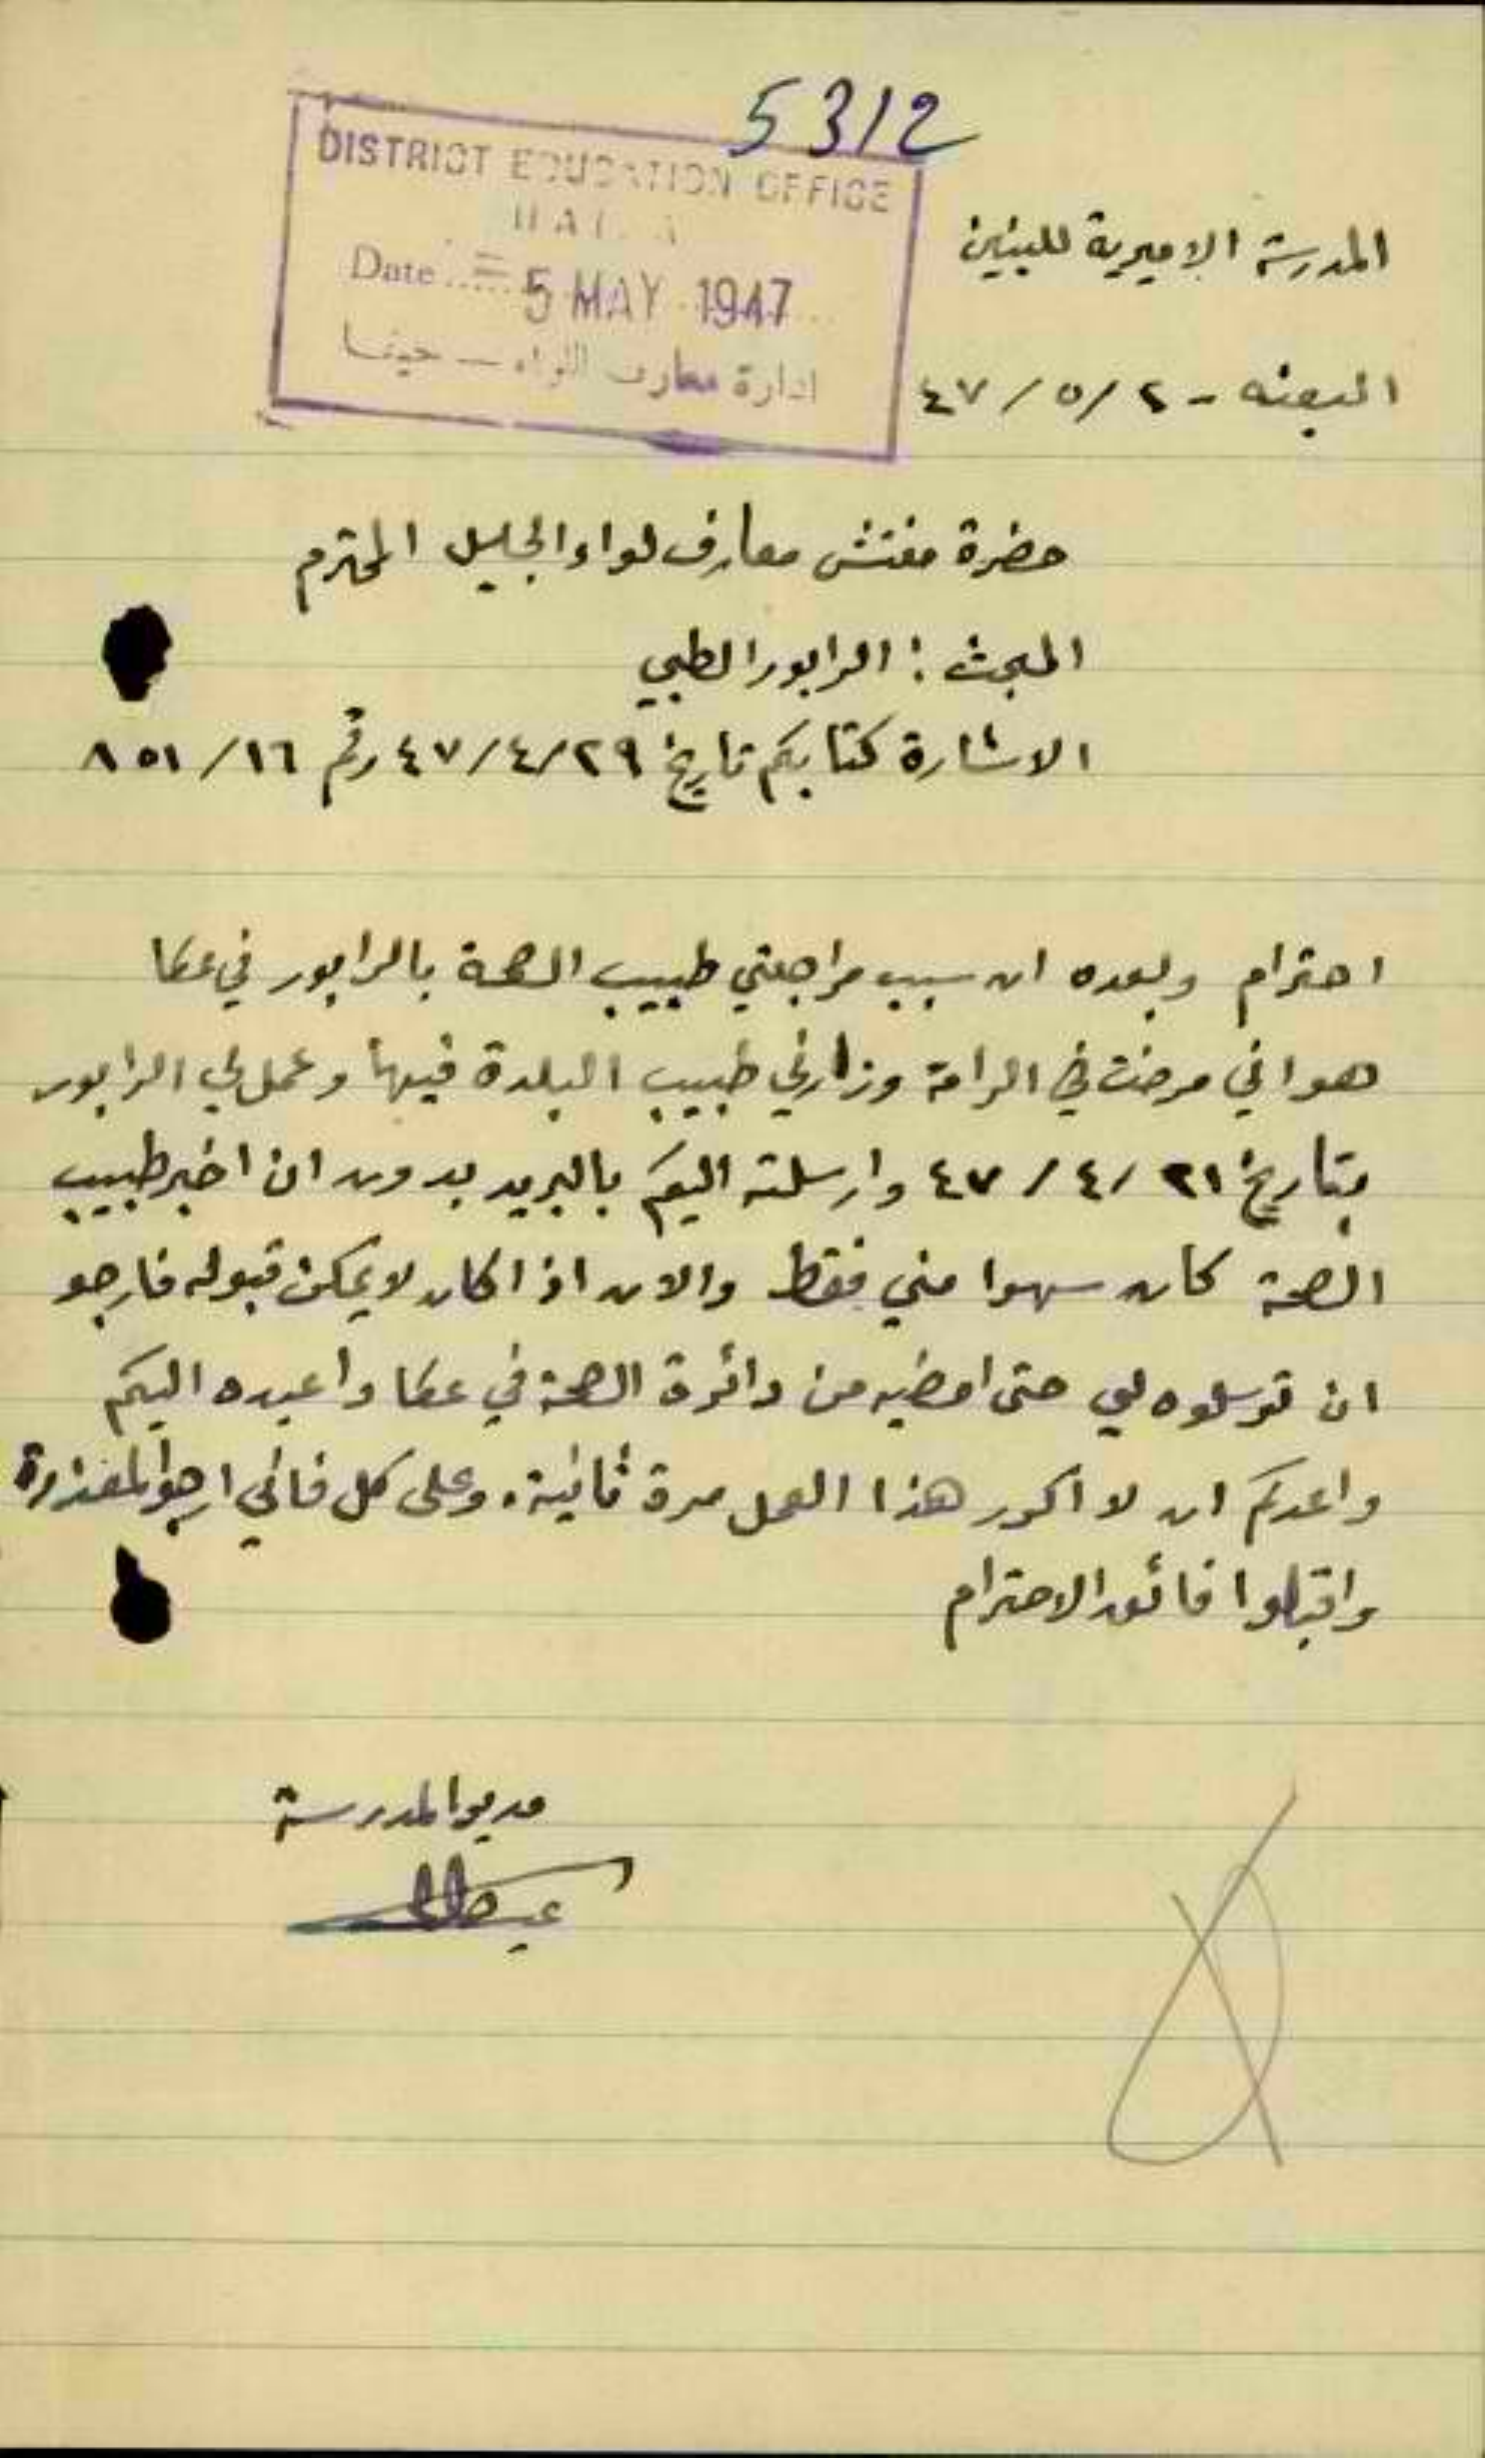 5312
DISTRICT EDUCATION OFFICE
HAIFA
Date ..... = 5 MAY 1947
ادارة معارف اللواء — حيفا
المدرسة الاميرية للبنين
البعنه - ٢ / ٥ / ٤٧
حضرة مفتش معارف لواء الجليل المحترم
المبحث : الرابور الطبي
الاشارة كتابكم تاريخ ٢٩ / ٤ / ٤٧ رقم ١٦ / ٨٥١
احترام وبعده ان سبب مراجعتي طبيب الصحة بالرابور في عكا
هو اني مرضت في الرامة وزارني طبيب البلدة فيها وعمل لي الرابور
بتاريخ ٢١ / ٤ / ٤٧ وارسلته اليكم بالبريد بدون ان اخبر طبيب
الصحة كان سهوا مني فقط والان اذا كان لا يمكن قبوله فارجو
ان ترسلوه لي حتى امضيه من دائرة الصحة في عكا واعيده اليكم
واعدكم ان لا اكرر هذا العمل مرة ثانية. وعلى كل فاني ارجو المعذرة
واقبلوا فائق الاحترام
مدير المدرسة